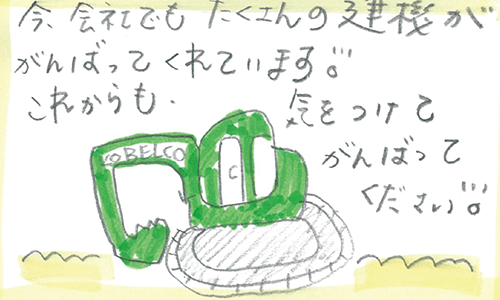 今、会社でもたくさんの建機が
がんばってくれています!!
これからも、
気をつけて
がんばって
ください!!
KOBELCO
C